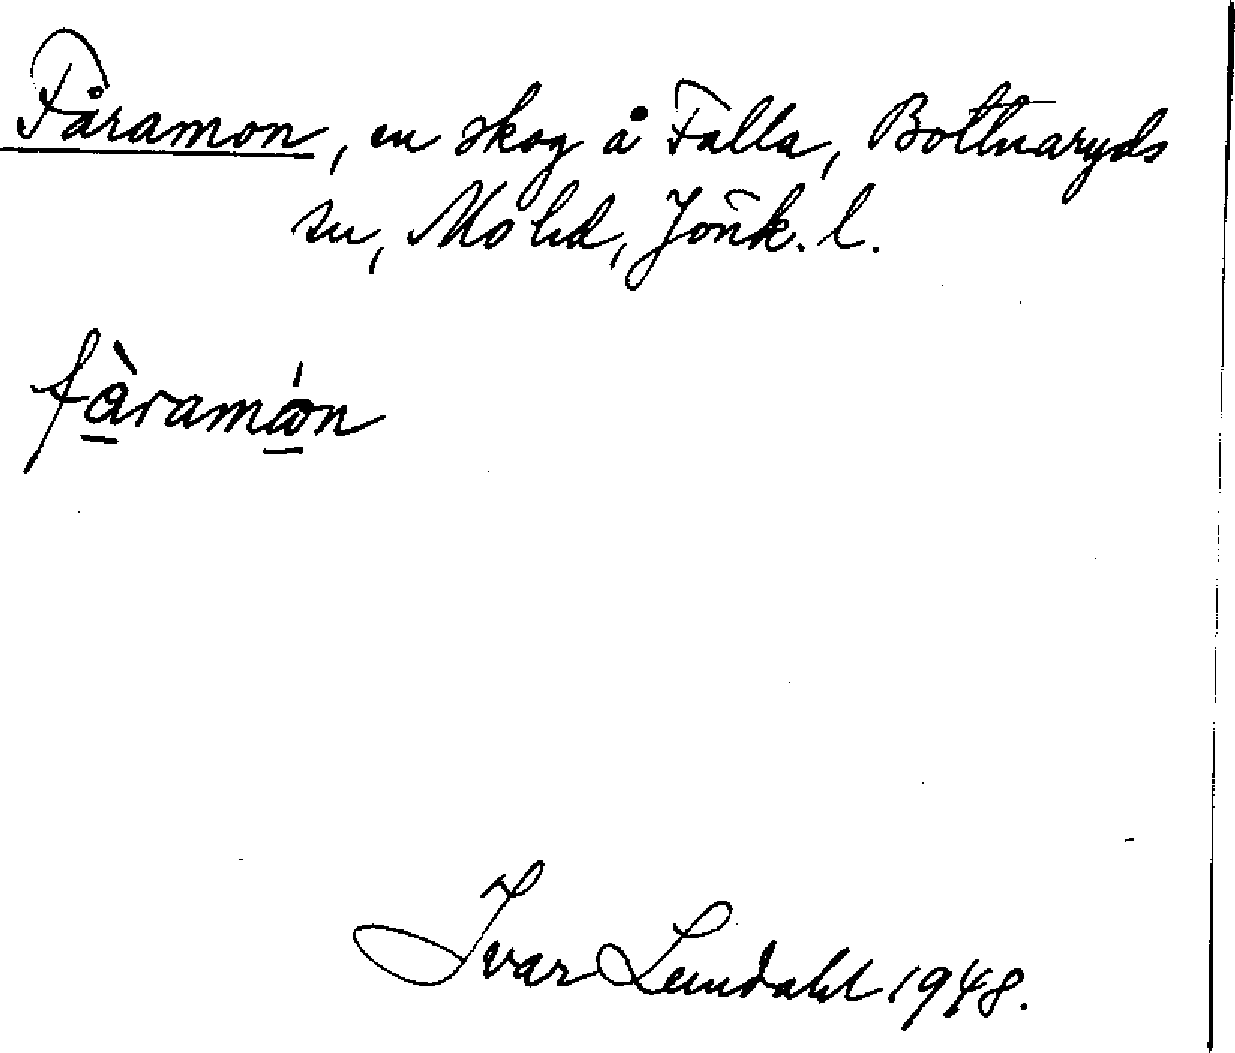 Fåramon, en skog å Falla, Bottnaryds
sn, Mo hd, Jönk. l.
fàramón
Ivar Lundahl 1948.